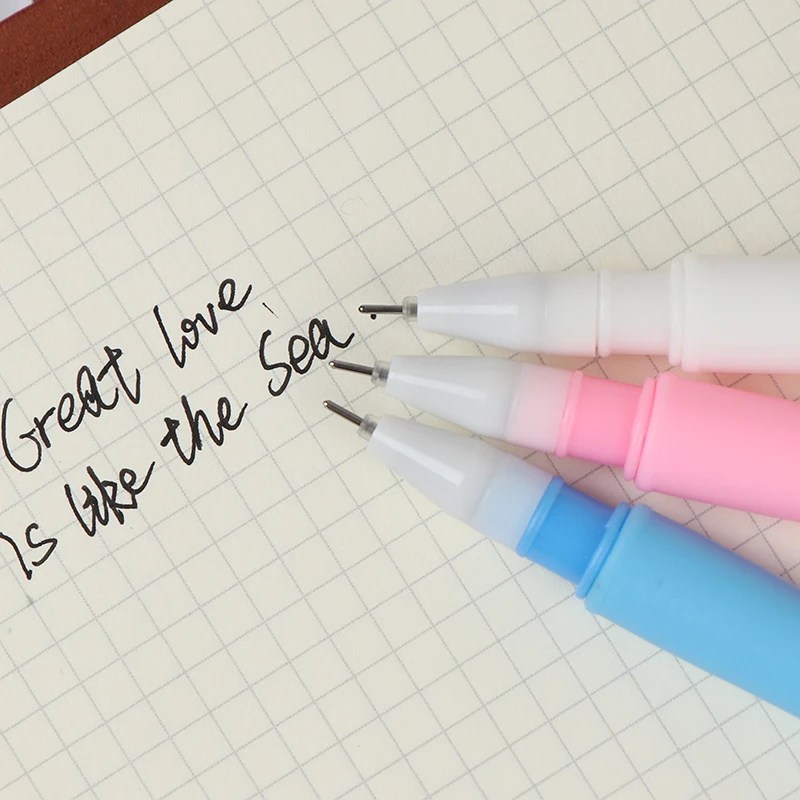 Great love,
is like the Sea.